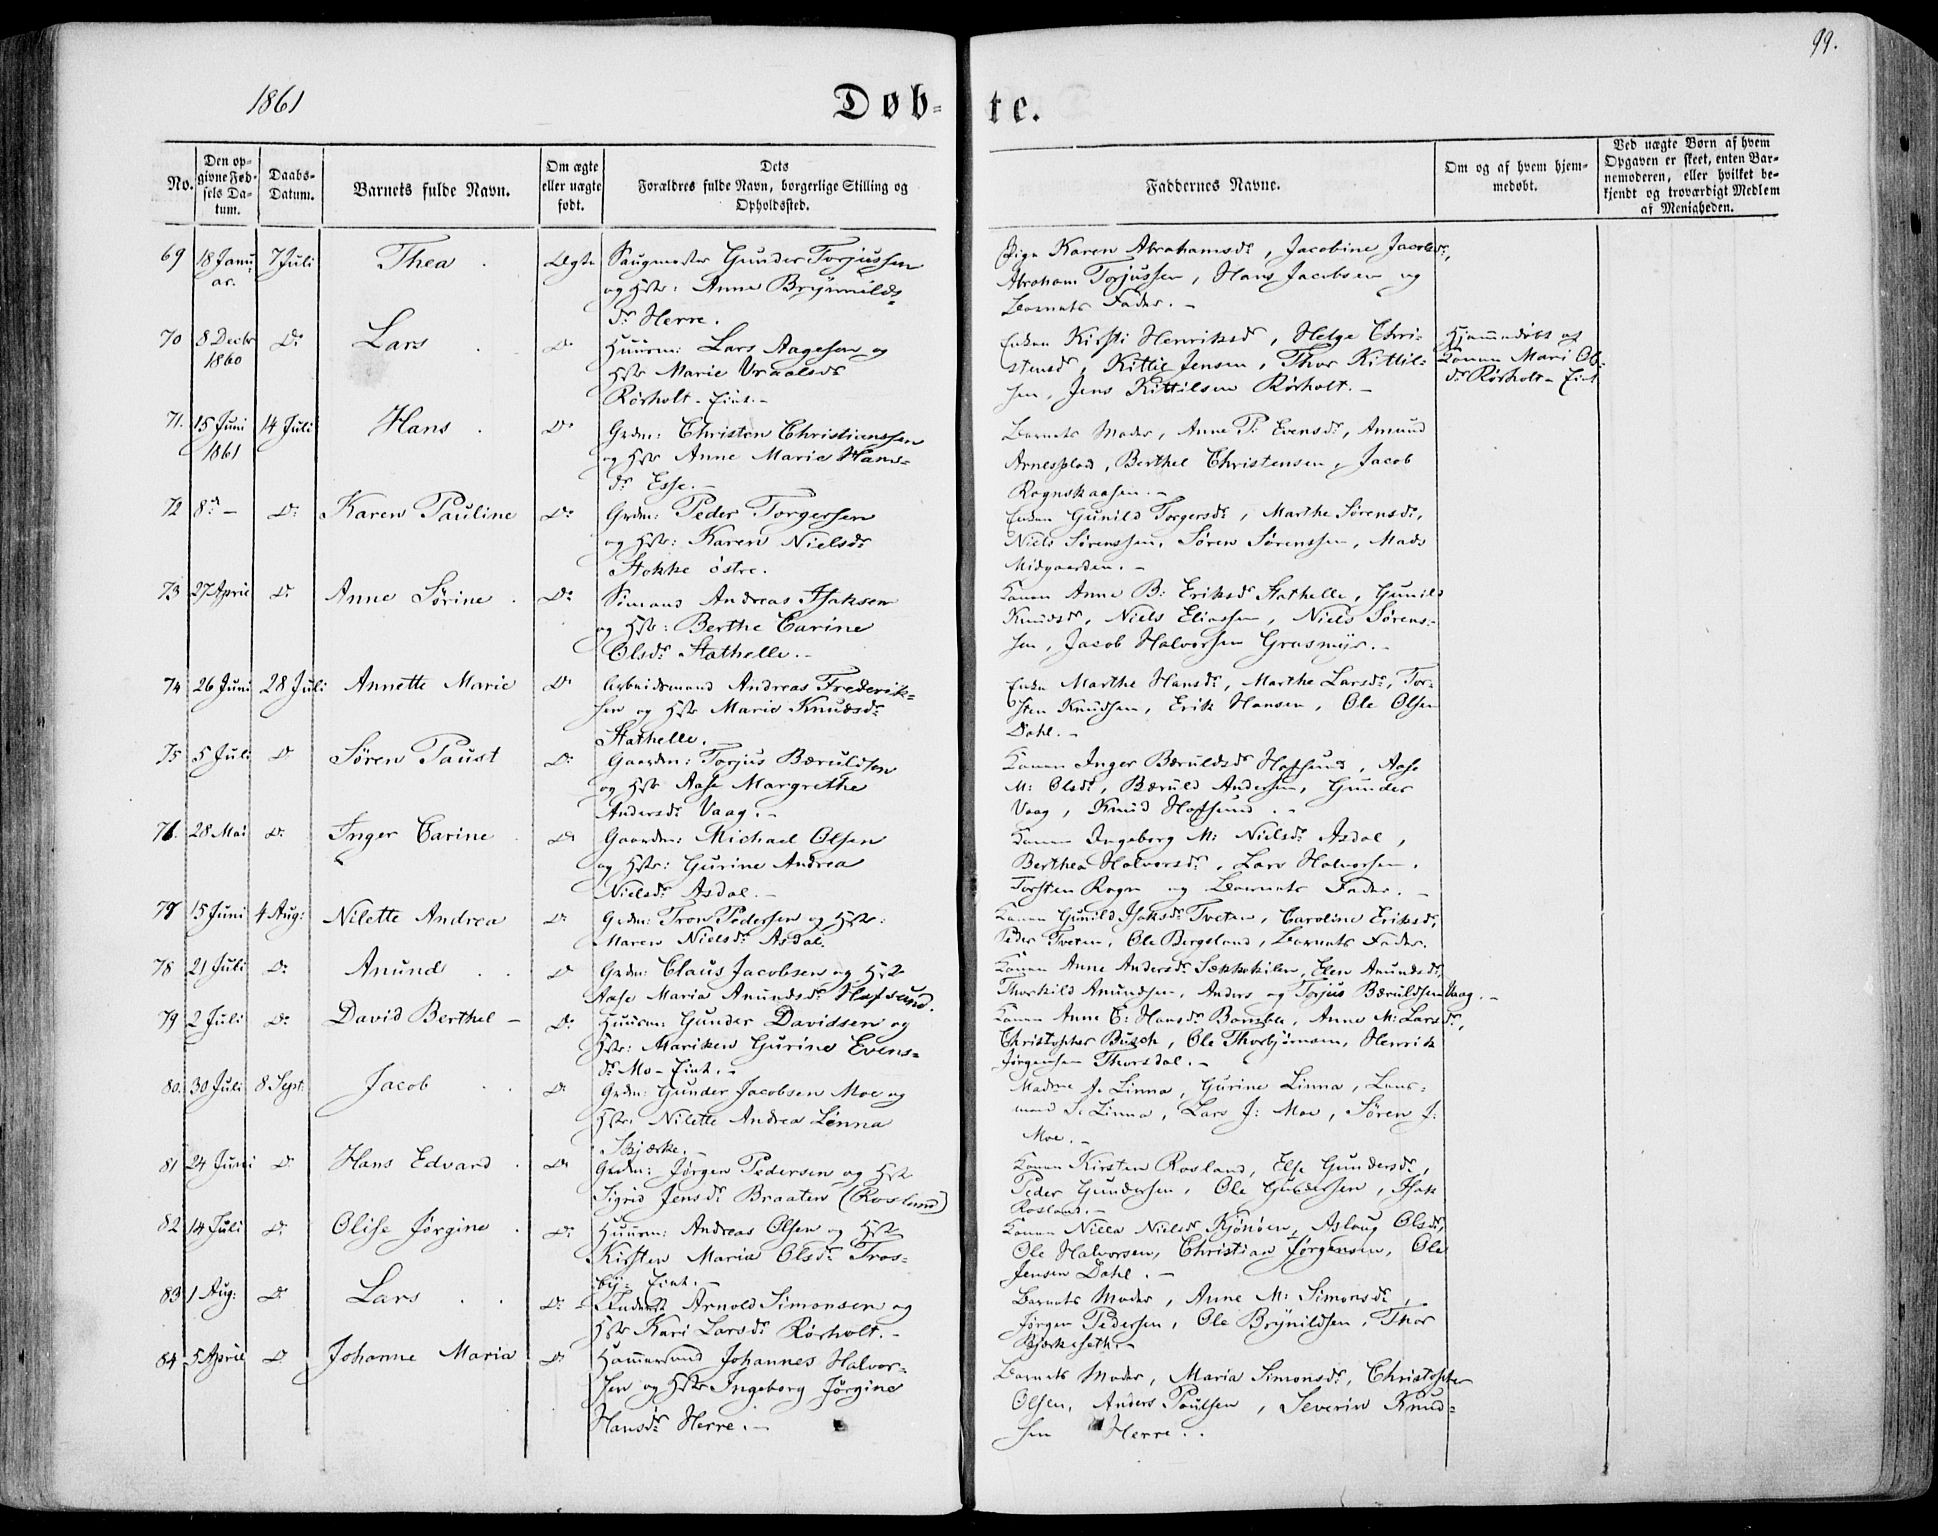 99.
1861
Døb-te.
No.
Den op-
givne Fød-
sels Da-
tum.
Daabs-
Datum.
Barnets fulde Navn.
Om ægte
eller uægte
født.
Dets
Forældres fulde Navn, borgerlige Stilling og
Opholdssted.
Faddernes Navne.
Om og af hvem hjem-
medøbt.
Ved uægte Børn af hvem
Opgaven er skeet, enten Bar-
nemoderen, eller hvilket be-
kjendt og troværdigt Medlem
af Menigheden.
69 18 Janu- 7 Juli Thea Ægte Saugmester Gunder Torjussen
ar. og Hstr: Anne Brynnilds
Dr Herre.
Pige Karen Abrahamsdr, Jacobine Jacobsdr,
Abraham Torjussen, Hans Jacobsen og
Barnets Fader.-
70 8 Decbr Do Lars Do Huusm: Lars Aagesen og
1860 Hstr Marie Vraalsdr
Rörholt-Eiet.-
Enken Kirsti Henriksdr, Helge Chri-
stensdr, Kittil Jensen, Thor Kittil-
sen, Jens Kittilsen Rörholt.-
Hjemmedöbt af
Konen Mari Ols-
dr Rörholt-Eiet
71. 15 Juni 14 Juli Hans Do Grdm: Christen Christianssen
1861 og Hstr Anne Marie Hans-
dr Esse.-
Barnets Moder, Anne P. Evensdr, Amund
Arnesplad, Berthel Christensen, Jacob
Rognskaasen.-
72 8d - Do Karen Pauline Do Grdm: Peder Torgersen
og Hstr: Karen Nielsdr
Stokke östre.
Enken Gunild Torgersdr, Marthe Sörensdr,
Niels Sörenssen, Sören Sörenssen, Mads
Midgaarden.-
73 27 April Do Anne Sörine Do Simans Andreas Isaksen
og Hstr: Berthe Carine
Olsdr Stathelle.-
Konen Anne B: Eriksdr Stathelle, Gunild
Knudsdr, Niels Eliassen, Niels Sörens-
sen, Jacob Halvorsen Grasmyr.-
74 26 Juni 28 Juli Annette Marie Do Arbeidsmand Andreas Frederik-
sen og Hstr Marie Knudsdr
Stathelle.
Enke Marthe Hansdr, Marthe Larsdr, Tor-
sten Knudsen, Erik Hansen, Ole Olsen
Dahl.-
75 5 Juli Do Sören Faust Do Gaardm: Torjus Bæruldsen
og Hstr Aase Margrethe
Andersdr Vaag.-
Konen Inger Bæruldsdr Hafsund, Aase
M: Olsdr, Bæruld Andersen, Gunder
Vaag, Knud Hafsund.-
76. 28 Mai Do Inger Carine Do Gaardm: Michael Olsen
og Hstr: Gurine Andrea
Nielsdr Asdal.-
Konen Ingeborg M: Nielsdr Asdal,
Berthea Halvorsdr, Lars Halvorsen,
Torsten Rogn og Barnets Fader.-
77 15 Juni 4 Aug: Nilette Andrea Do Grdm: Tron Pedersen og Hstr:
Maren Nielsdr Asdal.
Konen Gunild Isaksdr Tveten, Caroline Eriksdr,
Peder Tveten, Ole Bergsland, Barnets Fader.
78 21 Juli Do Anund Do Grdm: Claus Jacobsen og Hstr
Aase Maria Anundsdr Hafsund.
Konen Anne Andersdr Sækkekilen, Elen Anundsdr,
Thorkild Anundsen, Anders og Torjus Bæruldsen Vaag.-
79 2 Juli Do David Berthel- Do Huusm: Gunder Davidsen og
Hstr: Mariken Gurine Evens-
dr Mo-Eiet.-
Konen Anne E: Hansdr Bamble, Anne M: Larsdr,
Christopher Busch, Ole Thorbjörnsen, Henrik
Jörgensen Thorsdal.-
80. 30 Juli 8 Sept: Jacob Do Grdm: Gunder Jacobsen Moe og
Hstr: Nilette Andrea Linna
Skjærke.-
Madme J. Linna, Gurine Linna, Lens-
mand S. Linna, Lars J: Moe, Sören J:
Moe.-
81 24 Juni Do Hans Edvard Do Grdm: Jörgen Pedersen og Hstr
Sigrid Jensdr Braaten (Rosland)
Konen Kirsten Rosland, Else Gundersdr,
Peder Gundersen, Ole Gundersen, Isak
Rosland.-
82 14 Juli Do Olise Jörgine Do Huusm: Andreas Olsen og Hstr
Kirsten Maria Olsdr Tros-
by-Eiet.-
Konen Niels Nielsdr Kjönöen, Aslaug Olsdr,
Ole Halvorsen, Christian Jörgensen, Ole
Jensen Dahl.-
83 1 Aug: Do Lars Do Inderst Arnold Simonsen og
Hstr Kari Larsdr Rörholt.-
Barnets Moder, Anne M: Simonsdr,
Jörgen Pedersen, Ole Brynildsen, Thor
Bjerkesether
84 5 April Do Johanne Maria Do Hammersmd Johannes Halvor-
sen og Hstr Ingeborg Jörgine
Hansdr Herre.-
Barnets Moder, Maria Simonsdr, Christopher
Olsen, Anders Poulsen, Severin Knud-
sen Herre.